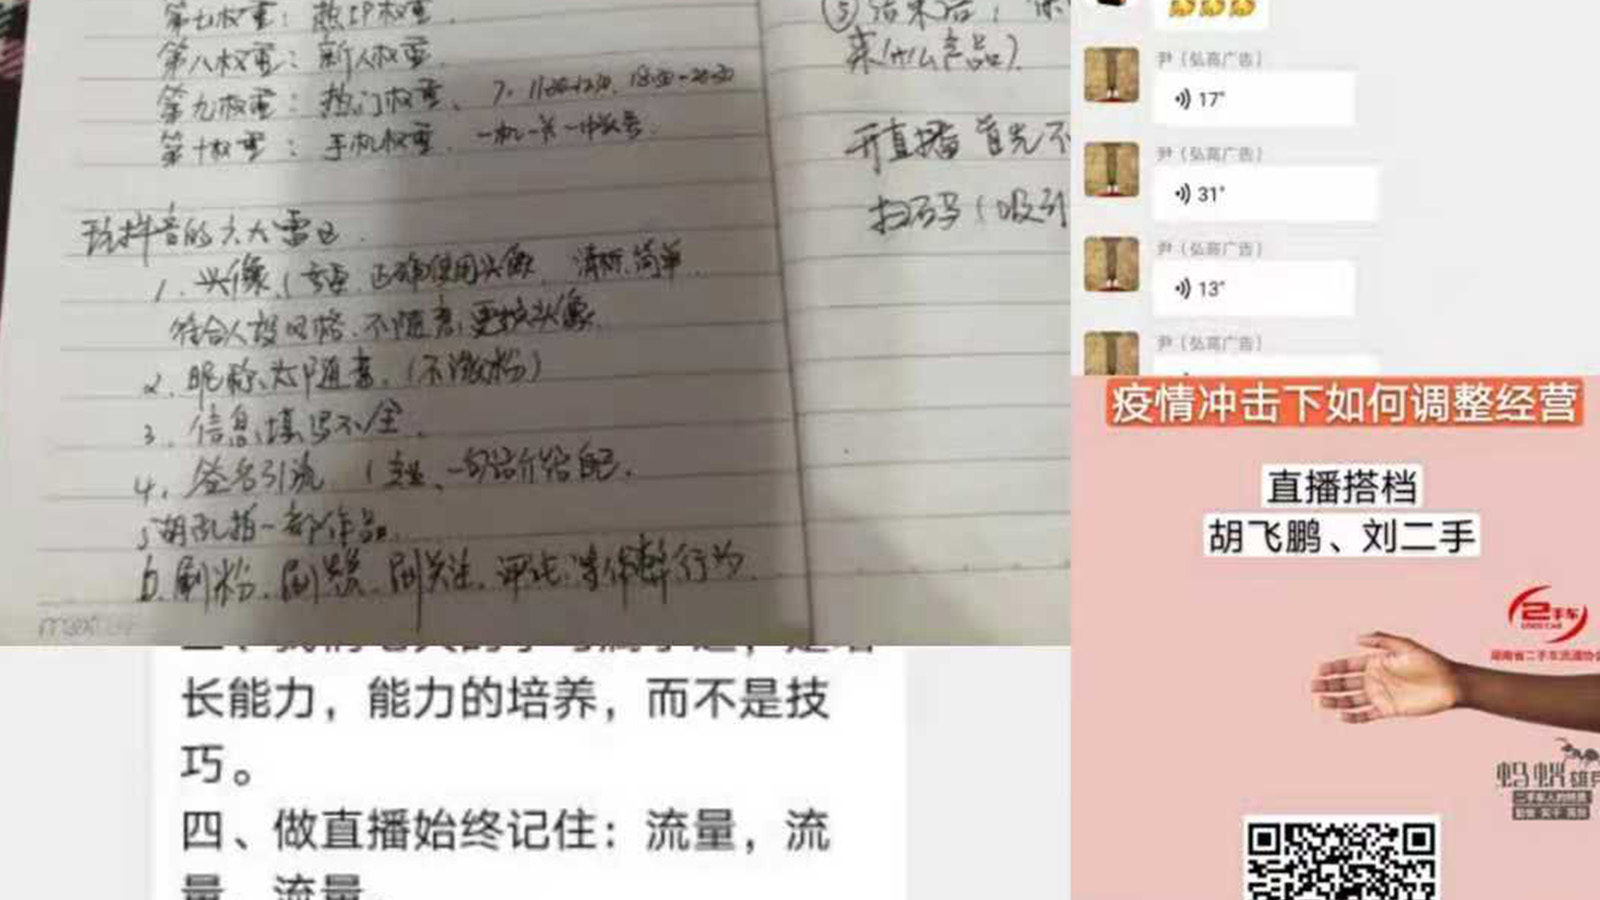 第七权重：热IP权重.
第八权重：新人权重.
第九权重：热门权重、
第十权重：手机权重、一机一卡一
玩抖音的六大雷区.
1、头像、正确使用头像、清晰、简单
符合人设风格、不随意更换头像.
2、昵称、太随意、
3、信息填写不全.
4、签名引流
5胡乱拍一部作品.
6、刷粉、刷赞、刷关注、评论、等作弊行为.
⑤结束后，
来什么产品).
开直播 首先不
扫码(吸引
尹（弘高广告）
17"
尹（弘高广告）
31"
尹（弘高广告）
13"
尹（弘高广告）
长能力，能力的培养，而不是技
巧。
四、做直播始终记住：流量，流
量，流量。
疫情冲击下如何调整经营
直播搭档
胡飞鹏、刘二手
2手车
湖南省二手车流通协会
蚂蚁雄兵